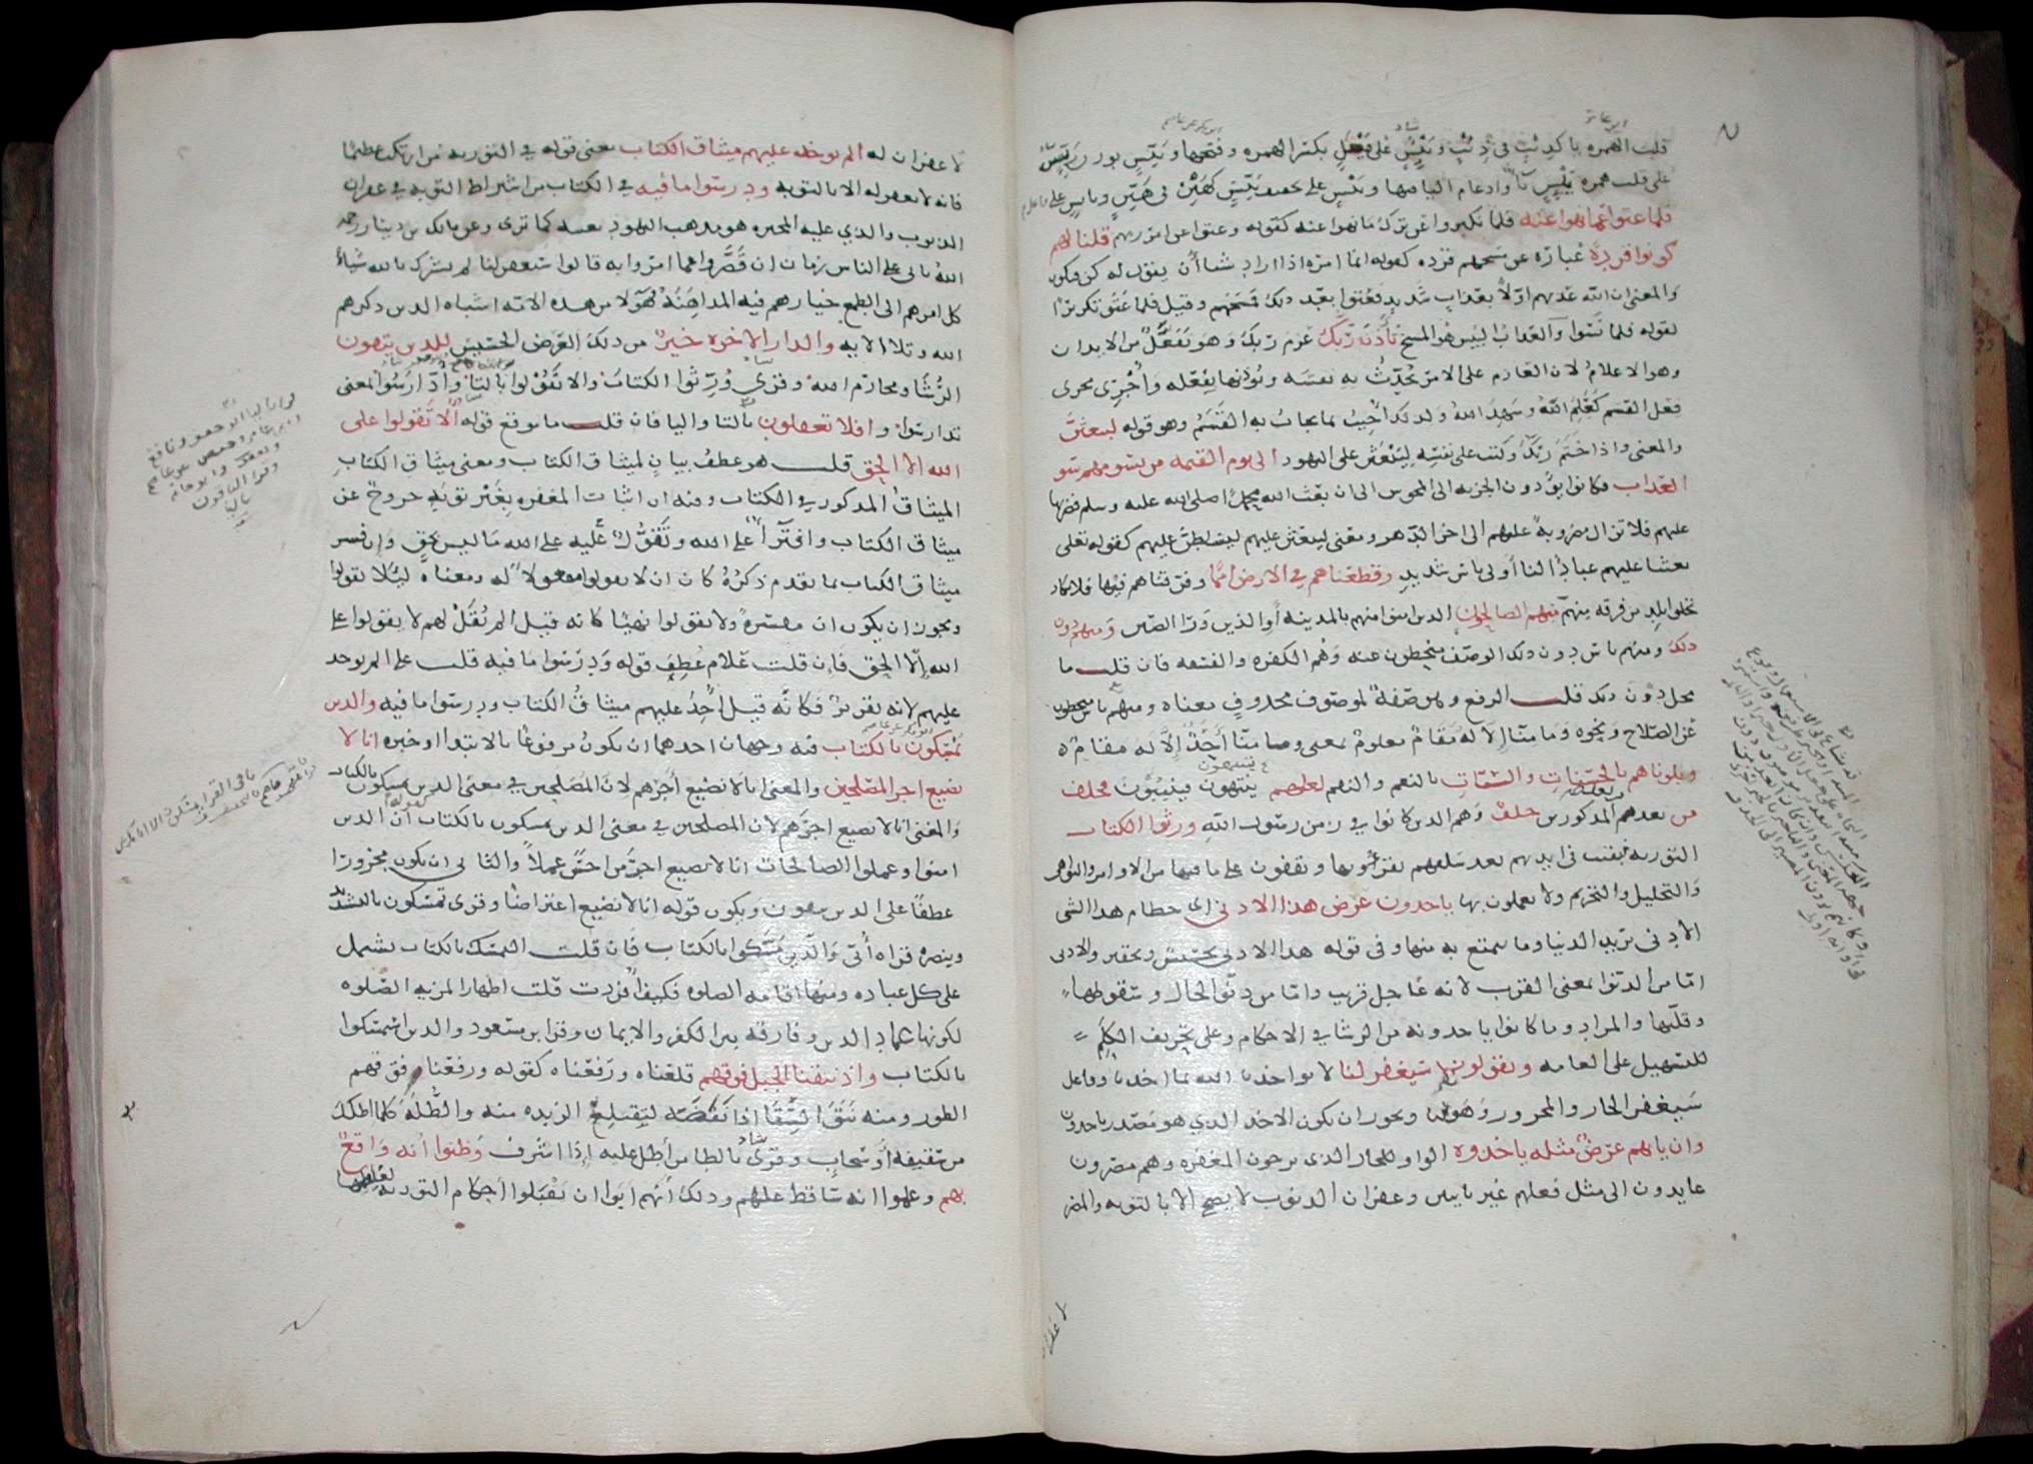 قلب الهمزه يا كذيب في ذئب وبَيْئِس على فَيْعِل بكسر الهمزه وفتحها وبيّس بوزن ريّس
على قلب همزه بَيْئِس يآ وادغام اليا فيها وبَيْس على تخفيف بَيّس كهَيْن في هَيّن وبايس على فاعل
فلما عتوا عما نهوا عنه فلما تكبروا عن ترك ما نهوا عنه كقوله وعتوا عن امر ربهم قلنا لهم
كونوا قردة عبارة عن مسخهم قرده كقوله انما امره اذا اراد شيا أن يقول له كن فيكون
والمعنى ان الله عذبهم اوّلاً بعذاب شديد فعتوا بعد ذلك فمسخهم وقيل فلما عتوا تكريرًا
لقوله فلما نسوا والعذاب البئيس هو المسخ تأذّن ربك عزم ربك وهو تفعّل من الايذان
وهو الاعلام لان العازم على الامر يحدّث به نفسه ويؤذنها بفعله وأُجري مجرى
فعل القسم كعلم الله وشهد الله ولذلك اجيب بما يجاب به القسم وهو قوله ليبعثن
والمعنى واذا حتم ربك وكتب على نفسه ليبعثن على اليهود الى يوم القيمه من يسومهم سو
العذاب فكانوا يؤدون الجزيه الى المجوس الى ان بعث الله محمدا صلى الله عليه وسلم فضربها
عليهم فلا تزال مضروبة عليهم الى اخر الدهر ومعنى ليبعثن عليهم ليسلطن عليهم كقوله تعلى
بعثنا عليكم عبادًا لنا أولي باس شديد وقطعناهم في الارض امما وفرقناهم فيها فلا يكاد
تخلوا بلد من فرقه منهم منهم الصالحون الذين امنوا منهم بالمدينه أو الذين ورا الصين ومنهم دون
ذلك ومنهم ناس دون ذلك الوصف منحطون عنه وهُم الكفره والفسقه فان قلت ما
محل دون ذلك قلت الرفع وهو صفةٌ لموصوف محذوفٍ معناه ومنهم ناس منحطون
عن الصلاح ونحوه وما منّا إلا له مقامٌ معلومٌ بمعنى وما منّا أحدٌ إلا له مقام
وبلوناهم بالحسنات والسيّات بالنعم والنقم لعلهم ينتهون فينيبون فخلف
من بعدهم المذكورين خلفٌ وهم الذين كانوا في زمن رسول الله ورثوا الكتاب
التوريه بقيت في ايديهم بعد سلفهم يقرؤنها ويقفون على ما فيها من الاوامر والنواهي
والتحليل والتحريم ولا يعملون بها ياخذون عرض هذا الادنى اي حطام هذا الشي
الأدنى يريد الدنيا وما يتمتع به منها وفي قوله هذا الادنى تخسيس وتحقير والادنى
امّا من الدنوّ بمعنى القرب لانه عاجل قريب وامّا من دنوّ الحال وسقوطها
وقلّتها والمراد ما كانوا ياخذونه من الرشا في الاحكام وعلى تحريف الكلم
للتسهيل على العامه ويقولون سيغفر لنا لا يواخذنا الله بما اخذنا وفاعل
سيغفر الجار والمجرور وهو لنا ويجوز ان يكون الاخذ الذي هو مصدر ياخذون
وان ياتهم عرضٌ مثله ياخذوه الواو للحال اي يرجون المغفره وهم مصرون
عايدون الى مثل فعلهم غير تايبين وغفران الذنوب لا يصح الا بالتوبه والمصر
لا غفران له الم يوخذ عليهم ميثاق الكتاب يعنى قوله في التوريه من ارتكب ذنبا عظيمًا
فانه لا يغفر له الا بالتوبه ودرسوا ما فيه في الكتاب من اشتراط التوبه في غفران
الذنوب والذي عليه المجبره هو مذهب اليهود بعينه كما ترى وعن مالك بن دينار رحمه
الله ياتي على الناس زمان ان قصّروا عما امروا به قالوا سيغفر لنا لم نشرك بالله شيأً
كل امرهم الى الطمع خيارهم فيه المداهنة فهولا من هذه الامه اشباه الذين ذكرهم
الله وتلا الايه والدار الاخره خيرٌ من ذلك العَرَض الخسيس للذين يتقون
الرشا ومحارم الله وقرى ورّثوا الكتاب والا تقولوا بالتا وادّارسوا بمعنى
تدارسوا وافلا تعقلون بالتا واليا فان قلت ما موقع قوله ألا تقولوا على
الله الا الحق قلت هو عطف بيانٍ لميثاق الكتاب ومعنى ميثاق الكتاب
الميثاق المذكور في الكتاب وفيه ان اثبات المغفره بغير توبةٍ خروجٌ عن
ميثاق الكتاب وافترآءٌ على الله وتقوّلٌ عليه على الله ما ليس بحق وان فسر
ميثاق الكتاب بما تقدم ذكرُهُ كان ان لا يقولوا مفعولاً له ومعناه ليلا يقولوا
ويجوز ان يكون ان مفسّرةً ولا تقولوا نهيًا كانه قيل ألم نقُل لهم لا يقولوا على
الله إلا الحق فان قلت علام عُطِف قوله ودرسوا ما فيه قلت على الم يوخذ
عليهم لانه تقريرٌ فكانّه قيل أُخِذَ عليهم ميثاقُ الكتاب ودرسوا ما فيه والذين
يمسّكون بالكتاب فيه وجهان احدهما ان يكون مرفوعًا بالابتدا وخبره انا لا
نضيع اجر المصلحين والمعنى انا لا نضيع أجرَهم لان المصلحين في معنى الذين يمسكون بالكتاب
والمعنى انا لا نضيع اجرهم لان المصلحين في معنى الذين يمسكون بالكتاب كقوله ان الذين
امنوا وعملوا الصالحات انا لا نضيع اجرَ من احسن عملاً والثاني ان يكون مجرورًا
عطفًا على الذين يتقون ويكون قوله انا لا نضيع اعتراضًا وقرى يمسكون بالتشديد
وينصره قراه أُبيّ والذين مسّكوا بالكتاب فان قلت التمسّك بالكتاب يشمل
على كل عباده ومنها اقامه الصلوه فكيف أُفردت قلت اظهارا لمزيه الصّلوه
لكونها عماد الدين وفارقه بين الكفر والايمان وقرا ابن مسعود والذين استمسكوا
بالكتاب واذ نتقنا الجبل فوقهم قلعناه ورفعناه كقوله ورفعنا فوقهم
الطور ومنه نتق السّقا اذا نفضه ليقتلع الزبده منه والظُلّة كلما اظلّك
من سقيفه أو سَحاب وقرى بالطا من أطل عليه إذا اشرف وظنوا انه واقعٌ
بهم وعلموا انه ساقط عليهم وذلك أنهم ابوا ان يقبلوا احكام التوريه لغلظها